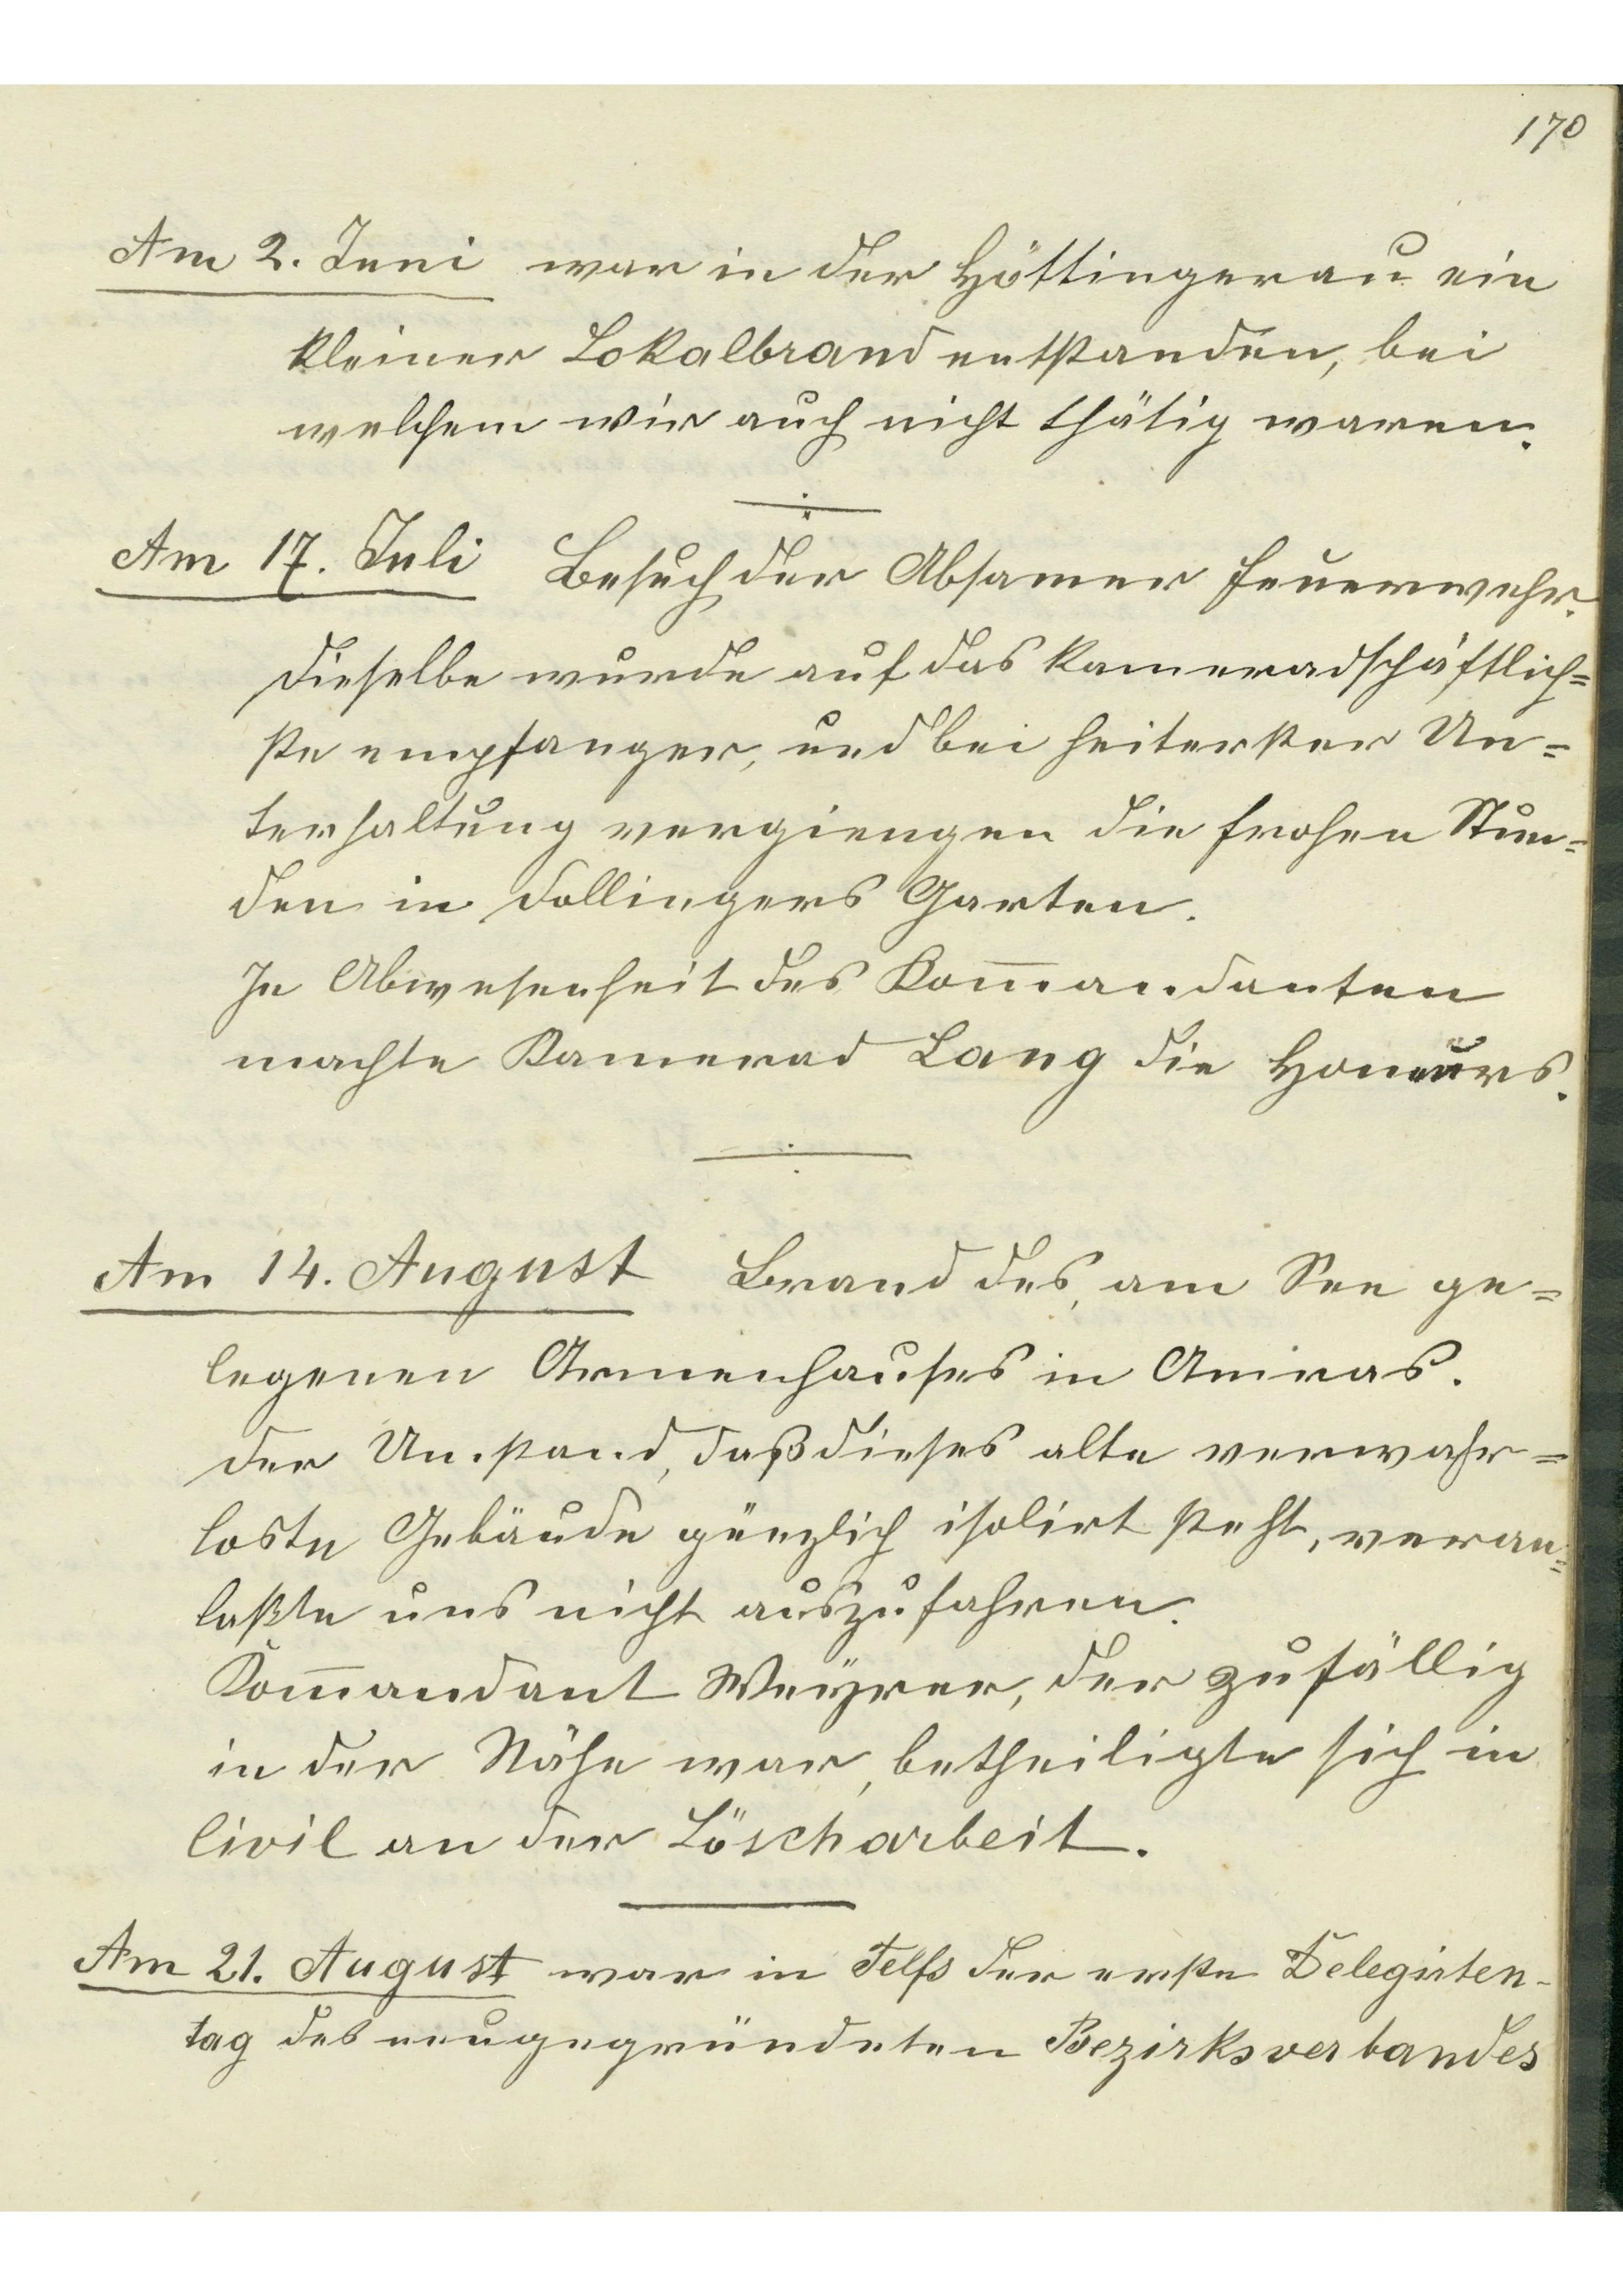 170
Am 2. Juni war in der Höttingerau ein
kleiner Lokalbrand entstanden, bei
welchem wir auch nicht thätig waren.
Am 17. Juli Besuch der Absamer Feuerwehr.
Dieselbe wurde auf das kameradschäftlich=
ste empfangen, und bei heiterster Un=
terhaltung vergiengen die frohen Stun=
den in Dollingers Garten.
In Abwesenheit des Kom̅andanten
machte Kamerad Lang die Honeurs.
Am 14. August Brand des, am See ge=
legenen Armenhauses in Amras.
Der Umstand, daß dieses alte verwahr=
loste Gebäude gänzlich isolirt steht, veran=
laßte uns nicht auszufahren.
Kom̅andant Weyrer, der zufällig
in der Nähe war, betheiligte sich in
Civil an der Löscharbeit.
Am 21. August war in Telfs der erste Delegirten-
tag des neugegründeten Bezirksverbandes